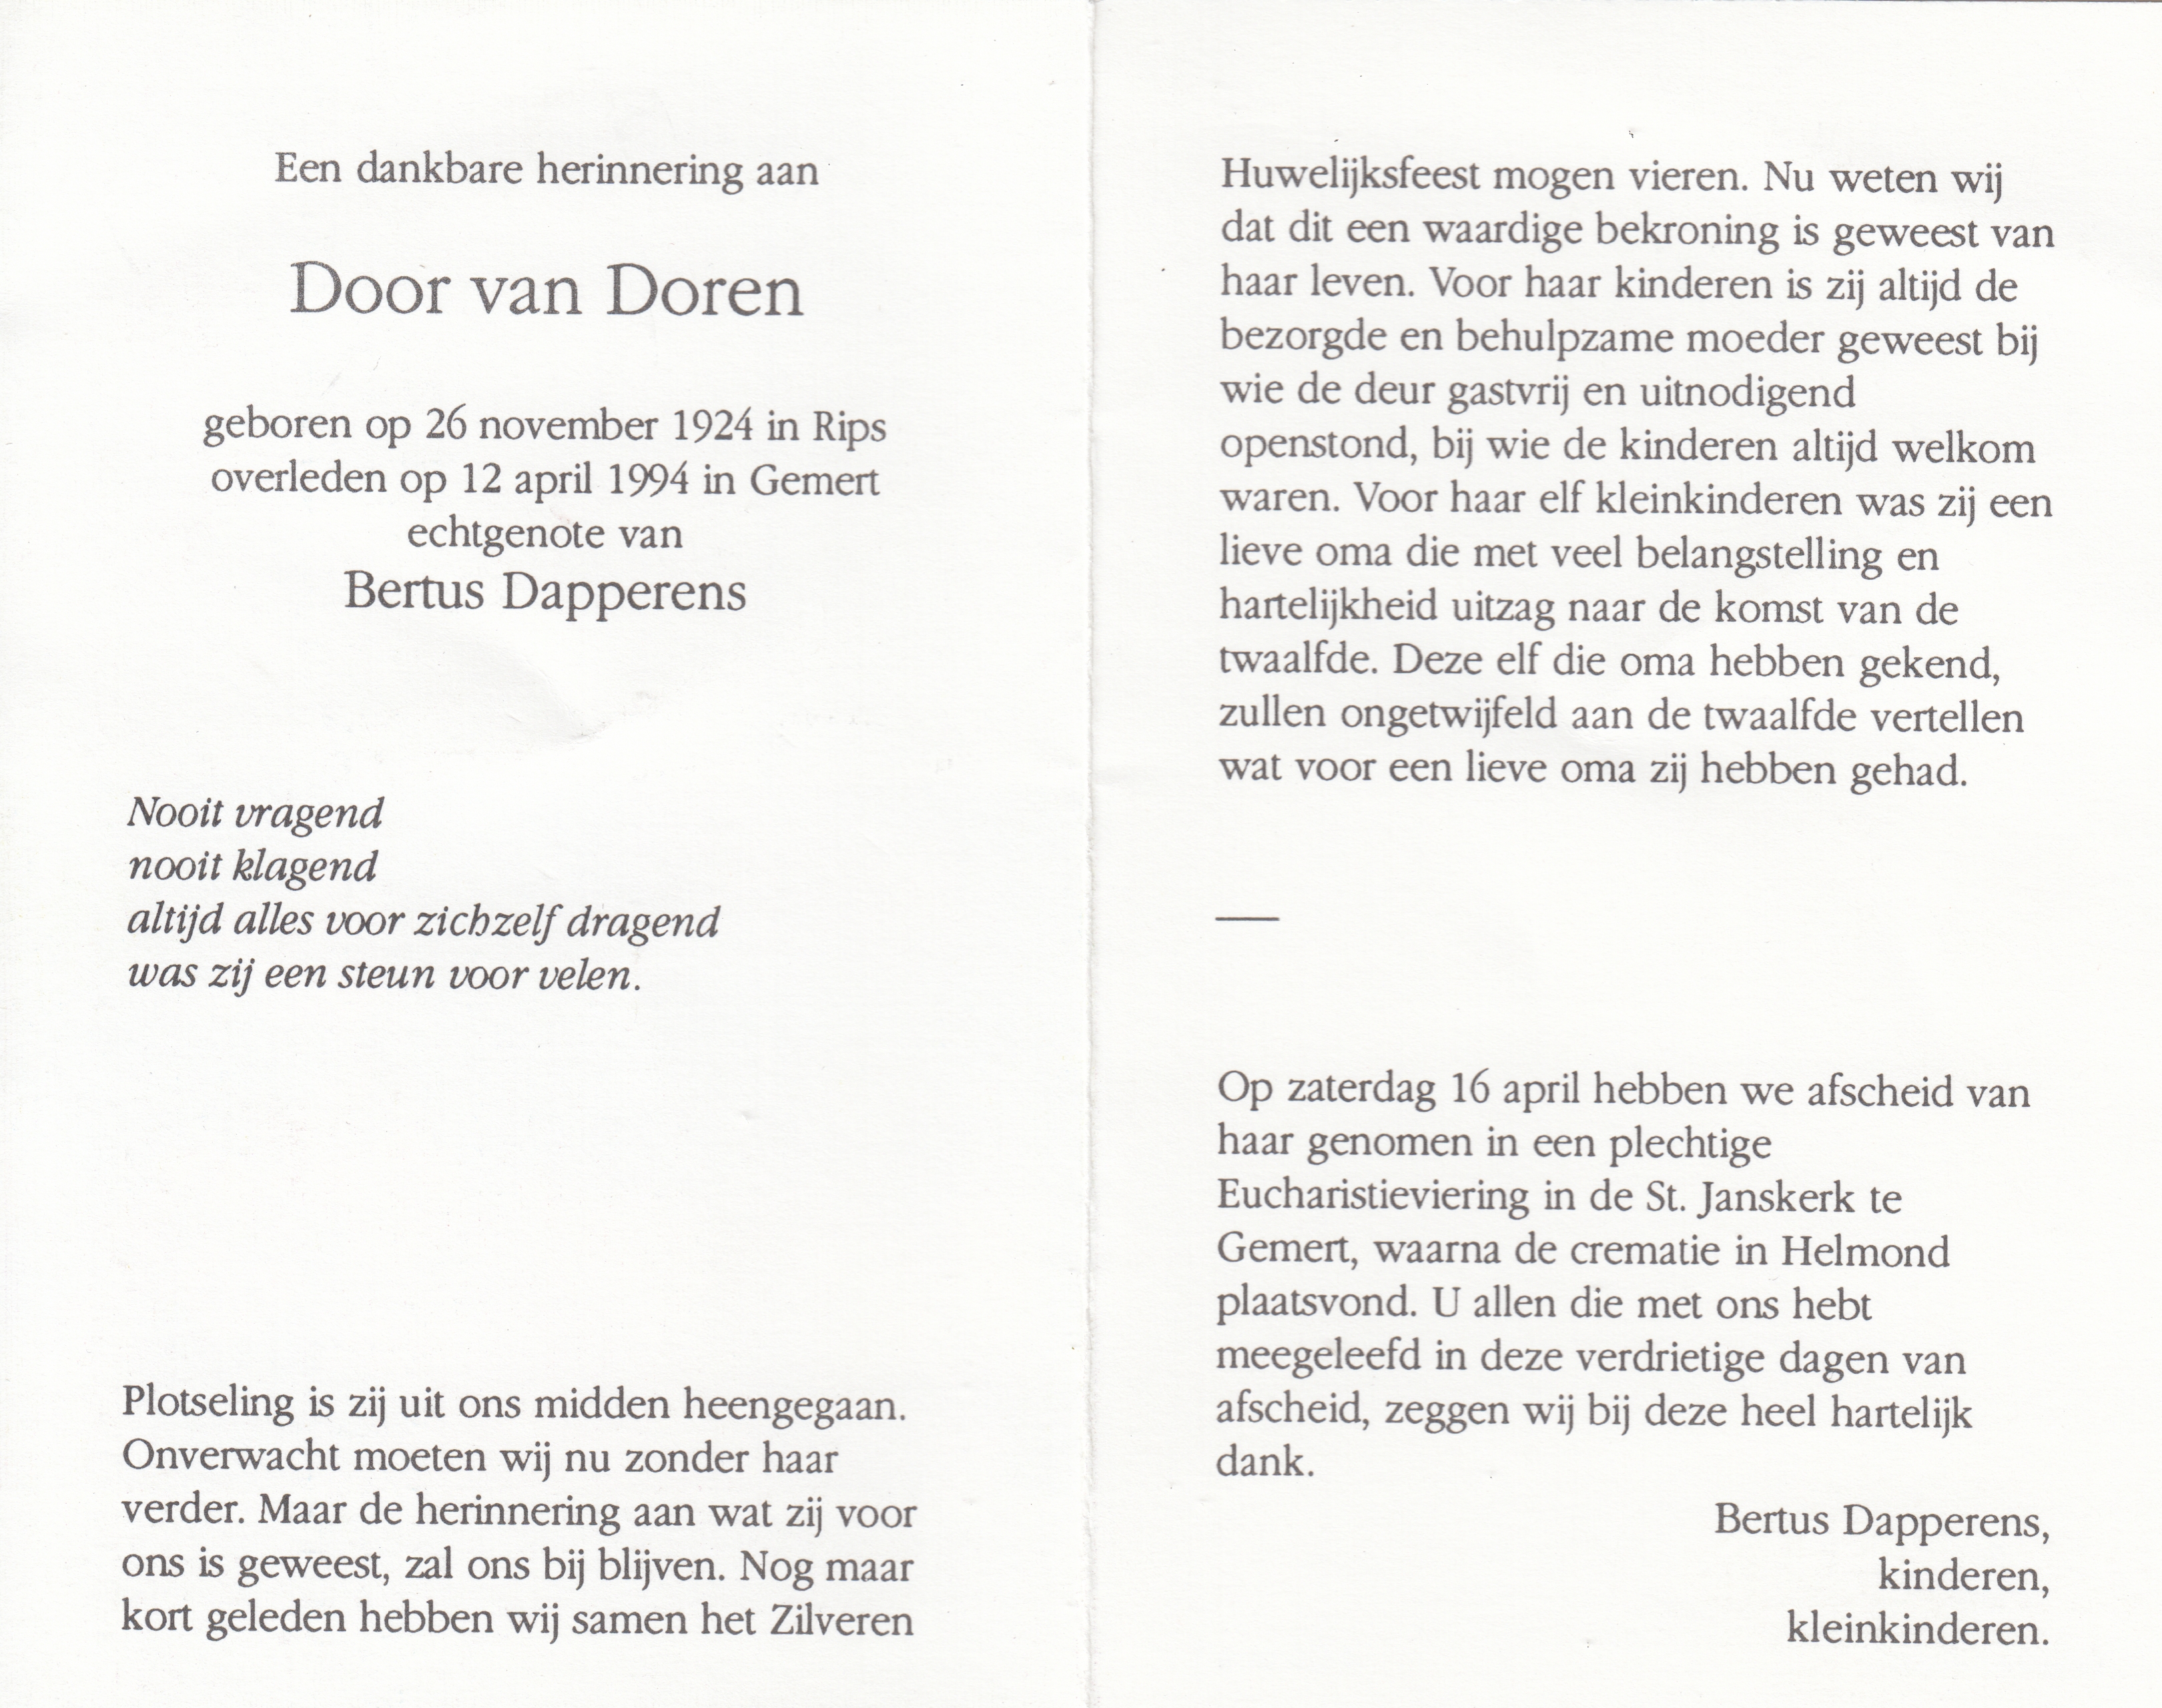 Een dankbare herinnering aan
Door van Doren
geboren op 26 november 1924 in Rips
overleden op 12 april 1994 in Gemert
echtgenote van
Bertus Dapperens
Nooit vragend
nooit klagend
altijd alles voor zichzelf dragend
was zij een steun voor velen.
Plotseling is zij uit ons midden heengegaan.
Onverwacht moeten wij nu zonder haar
verder. Maar de herinnering aan wat zij voor
ons is geweest, zal ons bij blijven. Nog maar
kort geleden hebben wij samen het Zilveren
Huwelijksfeest mogen vieren. Nu weten wij
dat dit een waardige bekroning is geweest van
haar leven. Voor haar kinderen is zij altijd de
bezorgde en behulpzame moeder geweest bij
wie de deur gastvrij en uitnodigend
openstond, bij wie de kinderen altijd welkom
waren. Voor haar elf kleinkinderen was zij een
lieve oma die met veel belangstelling en
hartelijkheid uitzag naar de komst van de
twaalfde. Deze elf die oma hebben gekend,
zullen ongetwijfeld aan de twaalfde vertellen
wat voor een lieve oma zij hebben gehad.
Op zaterdag 16 april hebben we afscheid van
haar genomen in een plechtige
Eucharistieviering in de St. Janskerk te
Gemert, waarna de crematie in Helmond
plaatsvond. U allen die met ons hebt
meegeleefd in deze verdrietige dagen van
afscheid, zeggen wij bij deze heel hartelijk
dank.
Bertus Dapperens,
kinderen,
kleinkinderen.